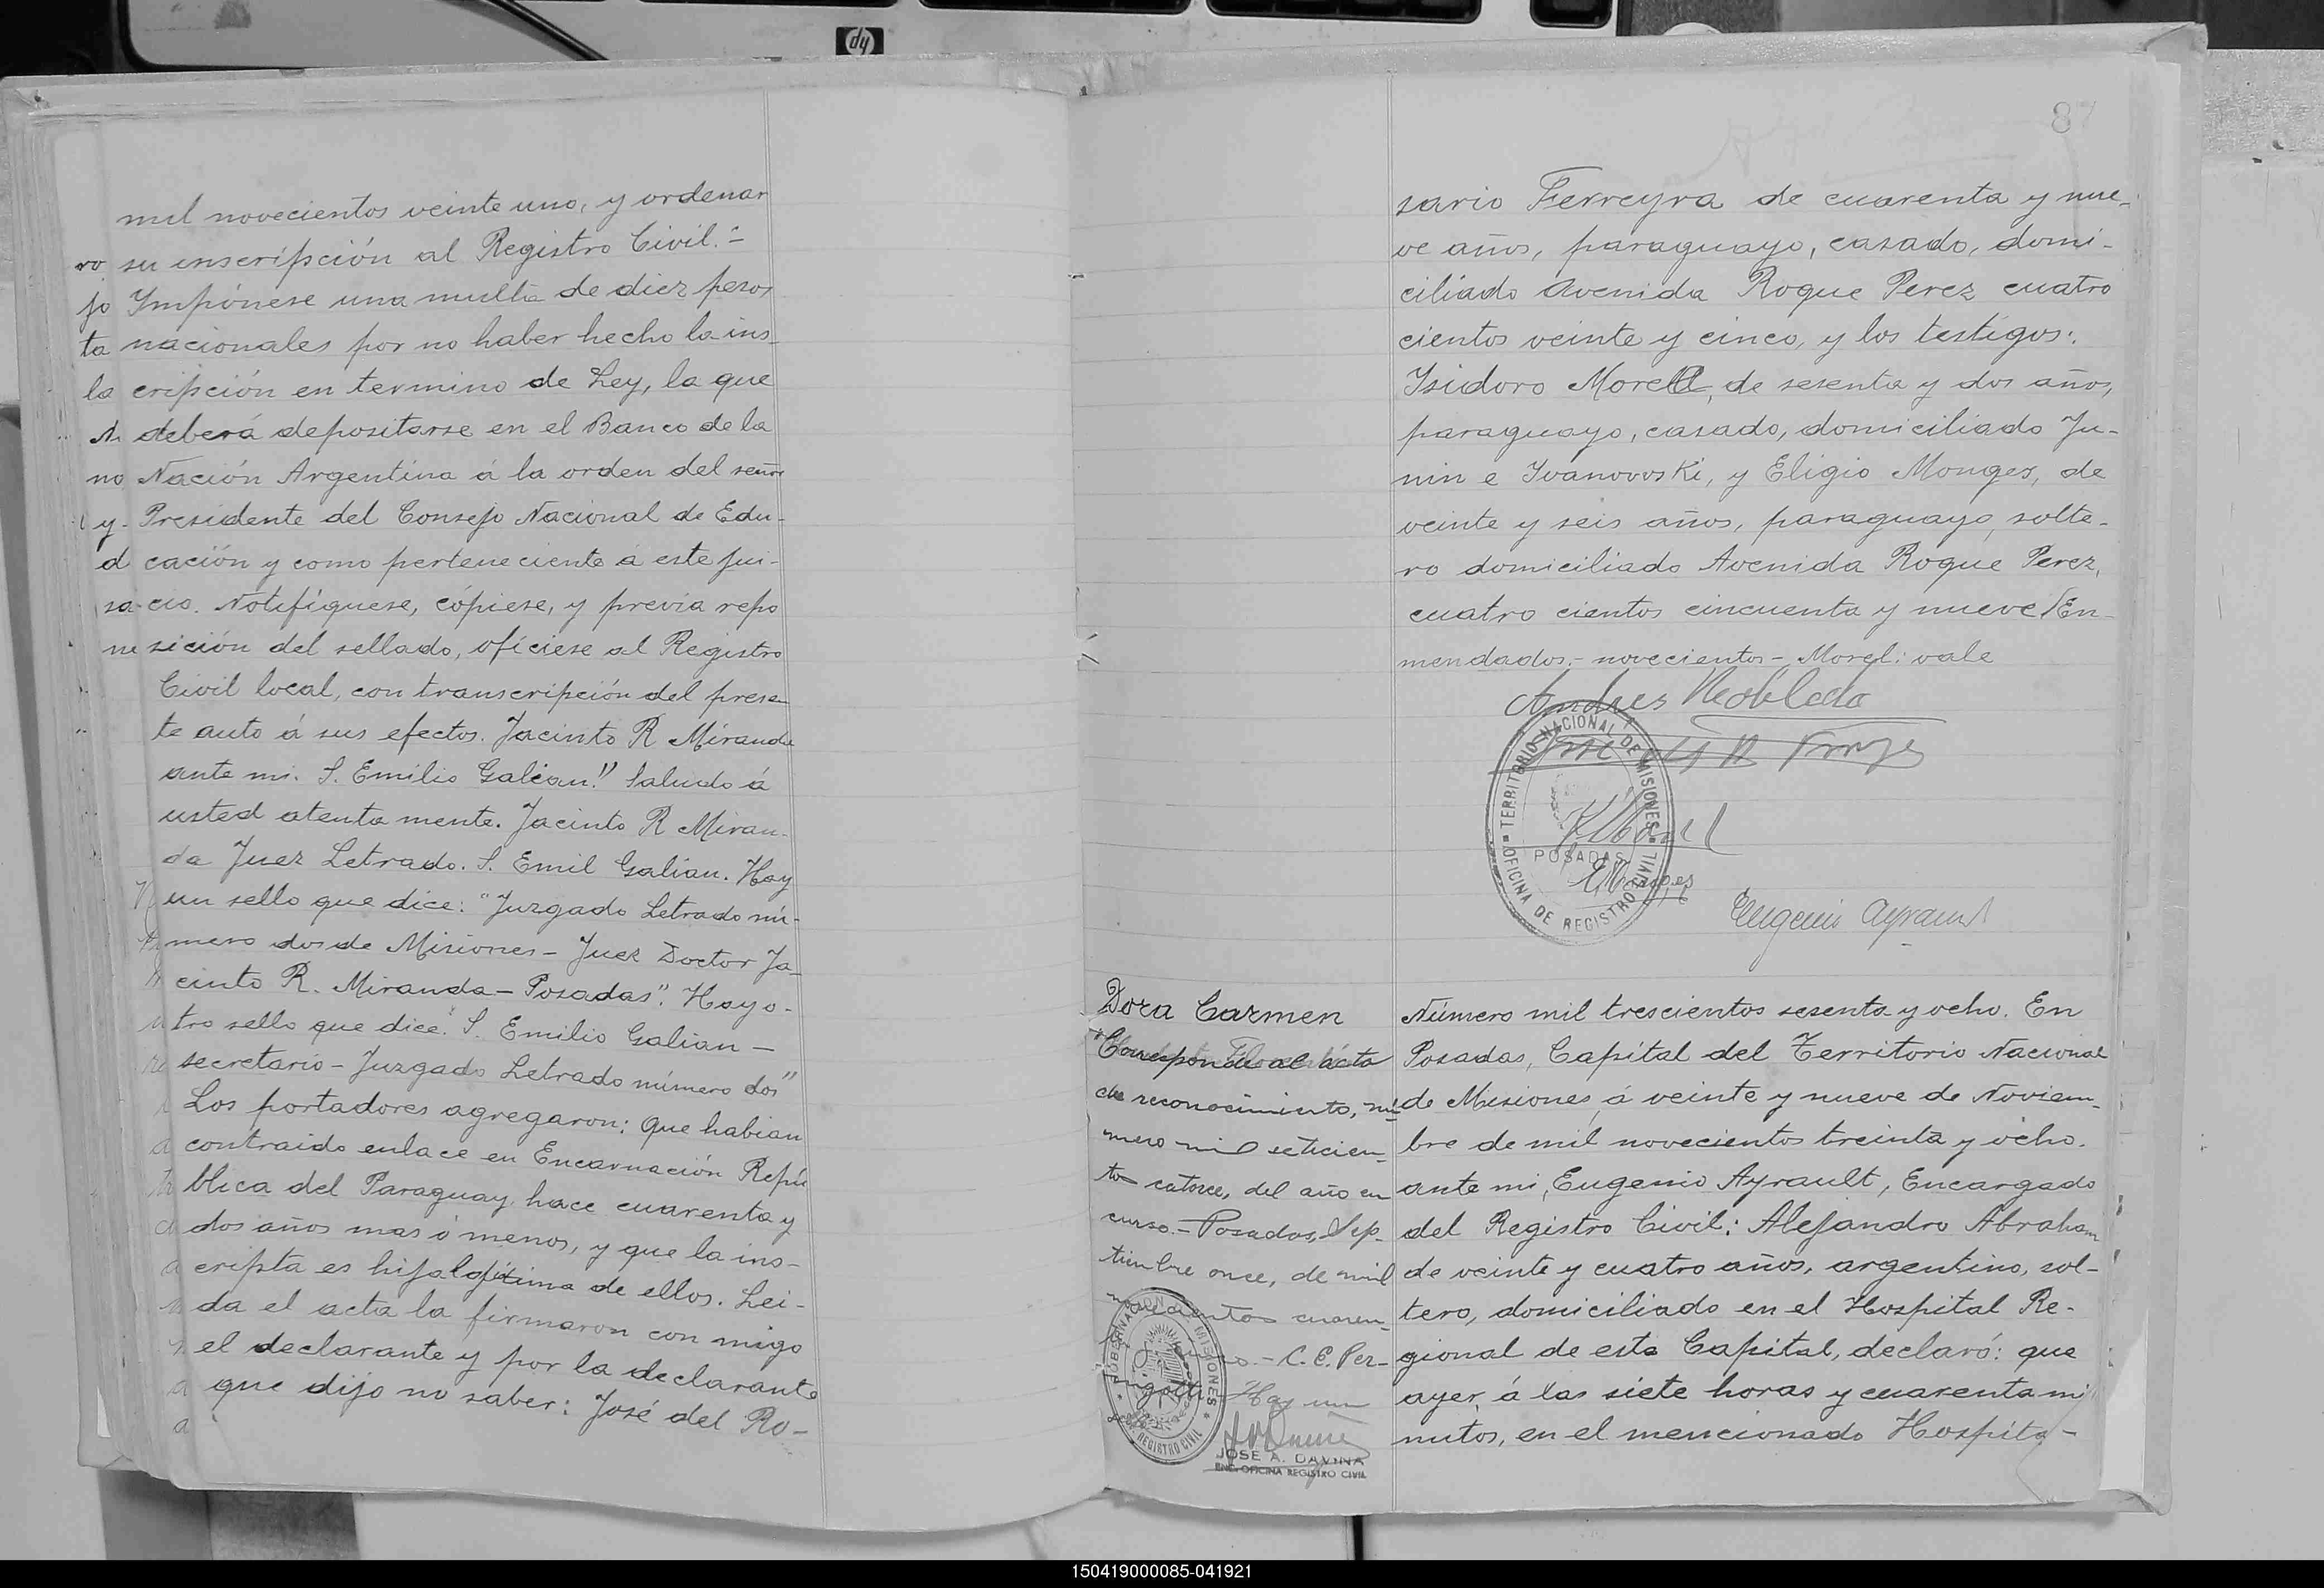 hp
mil novecientos veinte uno, y ordenar
su inscripción al Registro Civil."-
Impónese una multa de diez pesos
nacionales por no haber hecho la ins-
cripción en termino de Ley, la que
deberá depositarse en el Banco de la
Nación Argentina á la orden del señor
Presidente del Consejo Nacional de Edu-
cación y como perteneciente á este jui-
cio. Notifíquese, cópiese, y previa repo
sición del sellado, ofíciese al Registro
Civil local, con transcripción del presen
te auto á sus efectos. Jacinto R Miranda
ante mi. S. Emilio Galian!" Saludo á
usted atenta mente. Jacinto R Miran-
da Juez Letrado. S. Emil Galian. Hay
un sello que dice: "Juzgado Letrado nú-
mero dos de Misiones - Juez Doctor Ja-
cinto R. Miranda - Posadas". Hay o-
tro sello que dice: "S. Emilio Galian -
secretario - Juzgado Letrado número dos"
Los portadores agregaron: Que habian
contraido enlace en Encarnación Repú
blica del Paraguay, hace cuarenta y
dos años mas ó menos, y que la ins-
cripta es hija legítima de ellos. Lei-
da el acta la firmaron con migo
el declarante y por la declarante
que dijo no saber: José del Ro-
87
sario Ferreyra de cuarenta y nue-
ve años, paraguayo, casado, domi-
ciliado Avenida Roque Perez cuatro
cientos veinte y cinco, y los testigos:
Isidoro Morel, de sesenta y dos años,
paraguayo, casado, domiciliado Ju-
nin e Ivanovoski, y Eligio Monges, de
veinte y seis años, paraguayo, solte-
ro domiciliado Avenida Roque Perez,
cuatro cientos cincuenta y nueve. En-
mendados:- novecientos - Morel: vale
Andres Robledo
TERRITORIO NACIONAL DE MISIONES
POSADAS
OFICINA DE REGISTRO CIVIL
EMonges
Eugenio Ayrault
Dora Carmen
Corresponde al acta
de reconocimiento, nú-
mero mil setecien-
tos catorce, del año en
curso.- Posadas, Sep-
tiembre once, de mil
novecientos cuaren-
C. E. Per-
Hay un
GOBERNACION DE MISIONES
REGISTRO CIVIL
JOSE A. DAVIÑA
ENC. OFICINA REGISTRO CIVIL
Número mil trescientos sesenta y ocho. En
Posadas, Capital del Territorio Nacional
de Misiones, á veinte y nueve de Noviem-
bre de mil novecientos treinta y ocho.
ante mi, Eugenio Ayrault, Encargado
del Registro Civil: Alejandro Abraham
de veinte y cuatro años, argentino, sol-
tero, domiciliado en el Hospital Re-
gional de esta Capital, declaró: que
ayer, á las siete horas y cuarenta mi
nutos, en el mencionado Hospita-
150419000085-041921